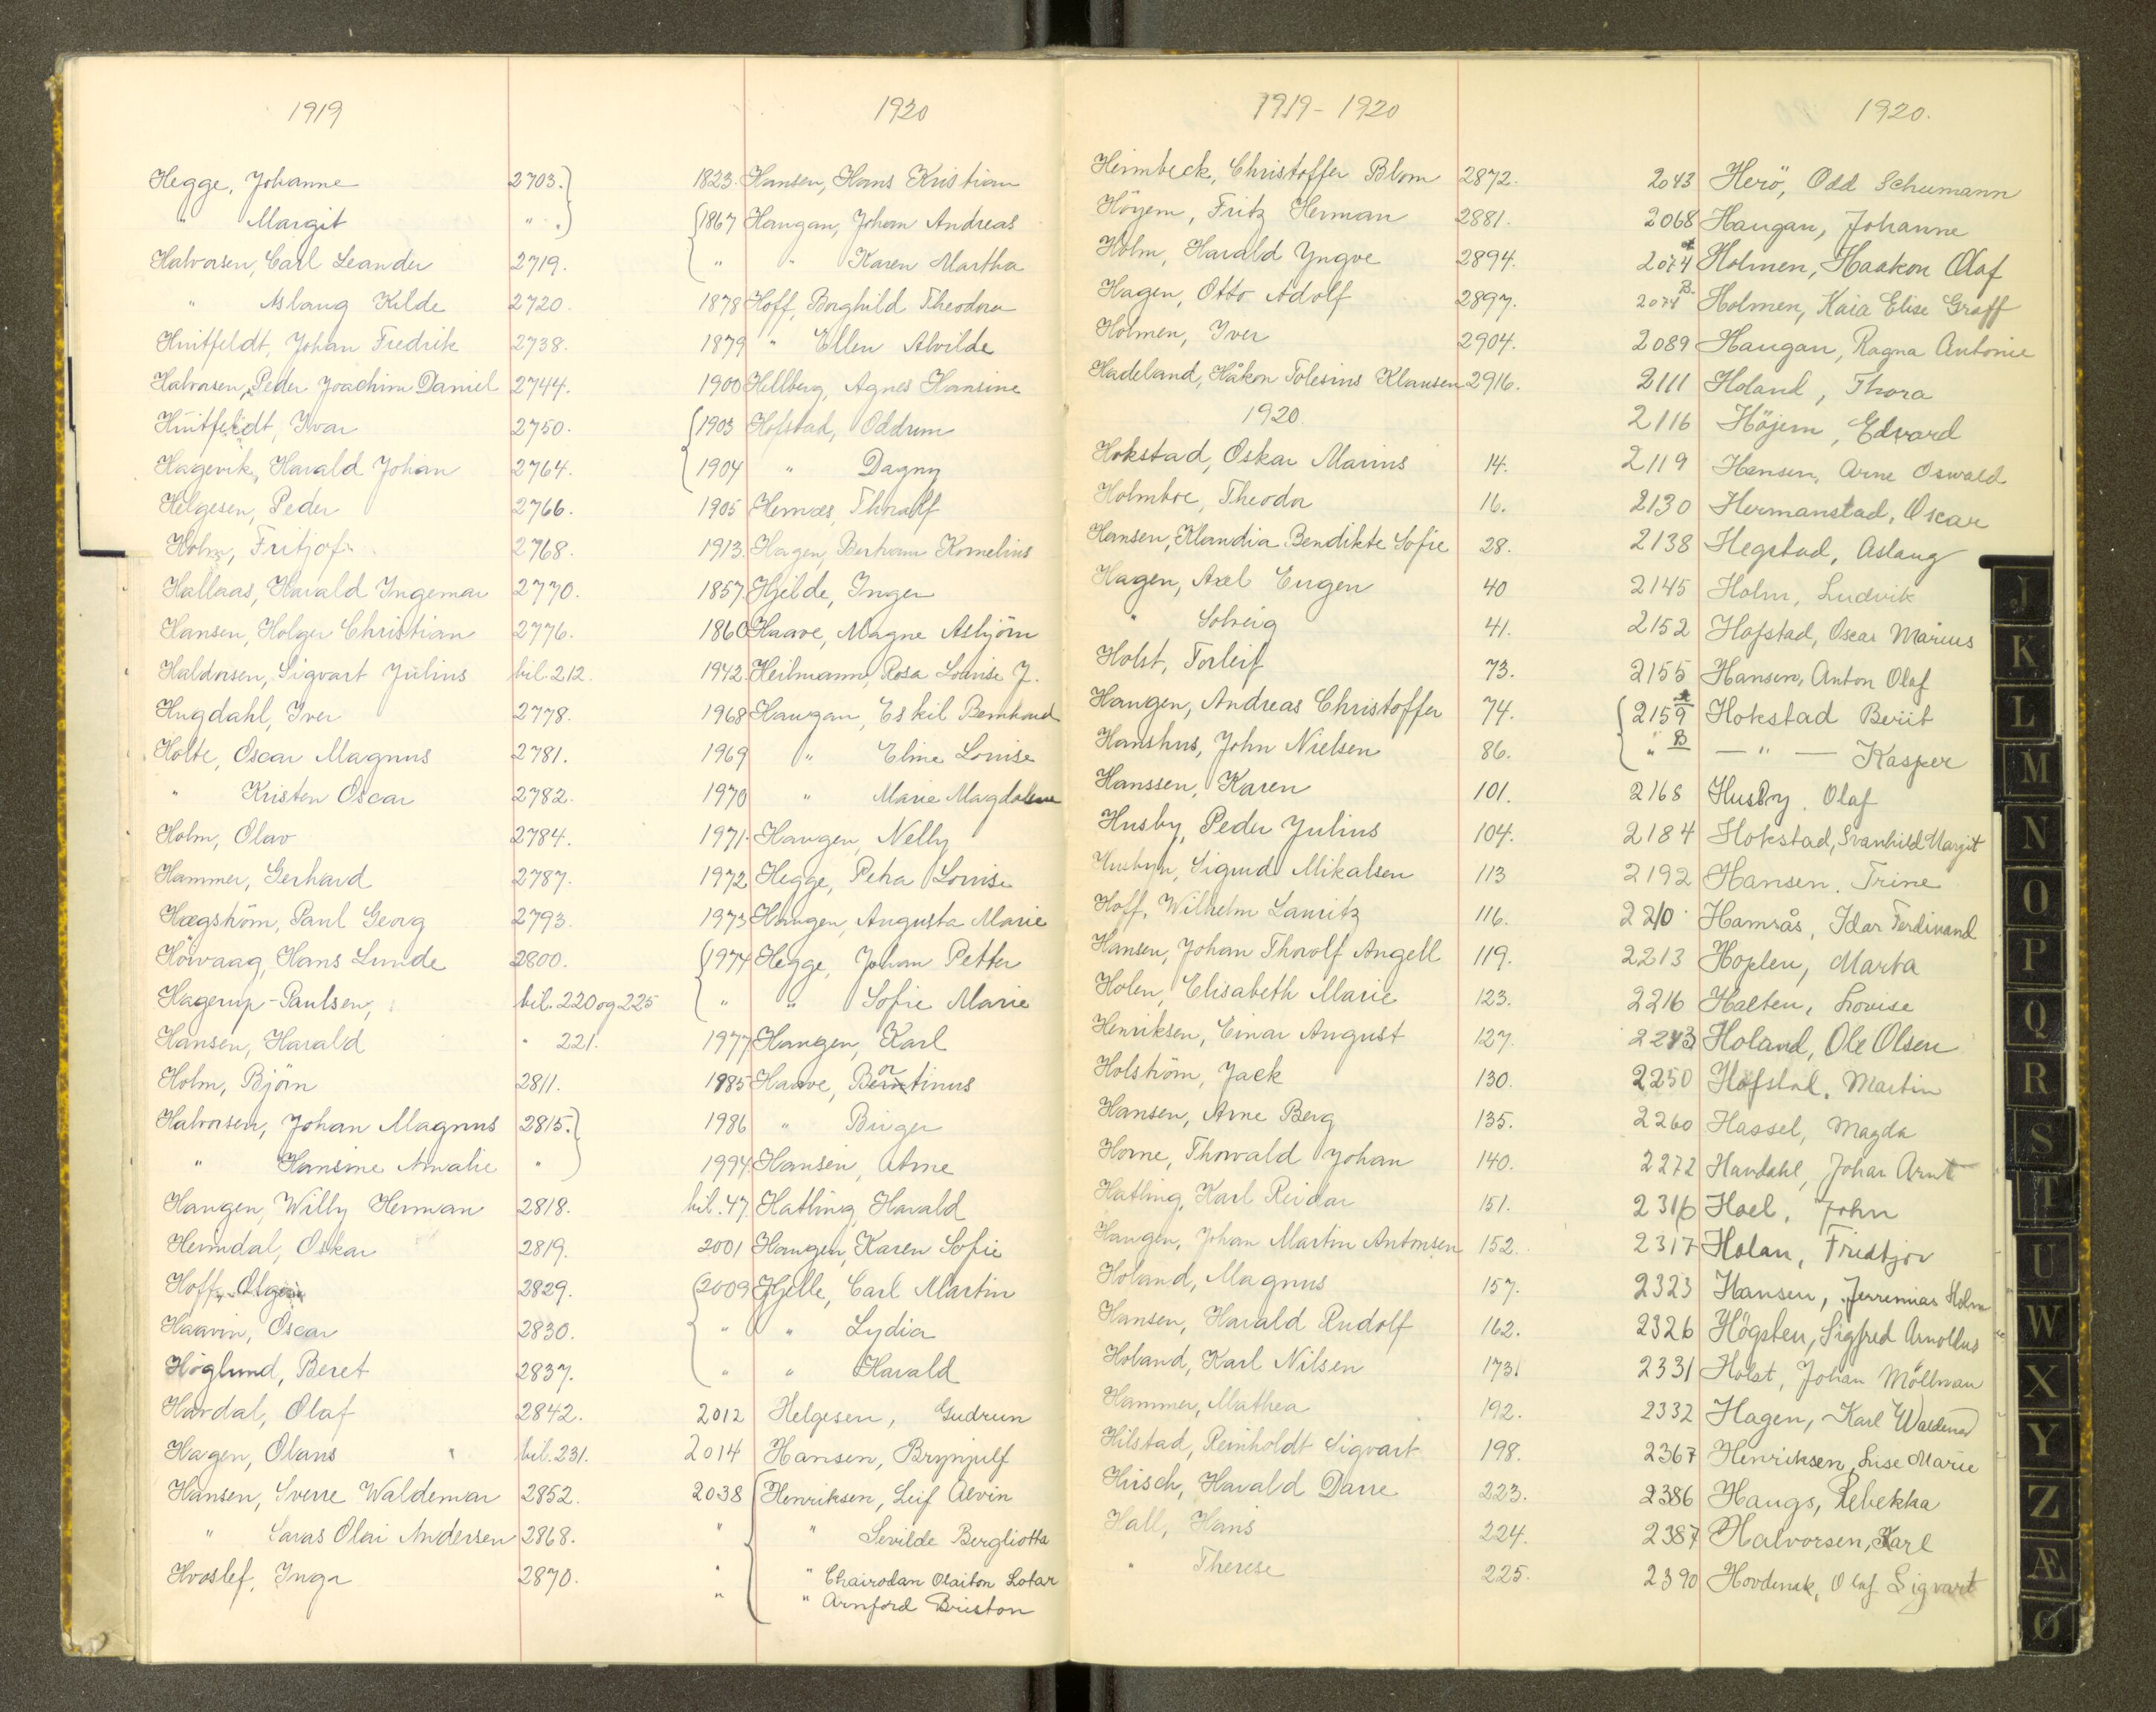 1919
Hegge, Johanne 2703.
" Margit " .
Halvorsen, Carl Leander 2719.
" Aslaug Kilde 2720.
Huitfeldt, Johan Fredrik 2738.
Halvorsen, Peder Joachim Daniel 2744.
Huitfeldt, Ivar 2750.
Hagevik, Harald Johan 2764.
Helgesen, Peder 2766.
Holm, Fritjof 2768.
Hallaas, Harald Ingemar 2770.
Hansen, Holger Christian 2776.
Haldorsen, Sigvart Julius bil. 212.
Hugdahl, Iver 2778.
Holte, Oscar Magnus 2781.
" Kristen Oscar 2782.
Holm, Olav 2784.
Hammer, Gerhard 2787.
Hægström, Paul Georg 2793.
Höwaag, Hans Lunde 2800.
Hagerup-Paulsen, bil. 220 og 225
Hansen, Harald " 221.
Holm, Björn 2811.
Halvorsen, Johan Magnus 2815.
" Hansine Amalie "
Haugen, Willy Herman 2818.
Hemdal, Oskar 2819.
Hoff, 2829.
Haavin, Oscar 2830.
Höglund, Beret 2837.
Hardal, Olaf 2842.
Hagen, Olaus bil. 231.
Hansen, Sverre Waldemar 2852.
" Savas Olai Andersen 2868.
Hvoslef, Inga 2870.
1920
1823. Hansen, Hans Kristian
1867 Haugan, Johan Andreas
" " Karen Martha
1878 Hoff, Borghild Theodora
1879 " Ellen Alvilde
1900 Hellberg, Agnes Hansine
1903 Hofstad, Oddrun
1904 " Dagny
1905 Hernæs, Thoralf
1913. Hagen, Bertram Kornelius
1857. Hjelde, Inger
1860 Haave, Magne Asbjörn
1942. Heilmann, Rosa Lovise J.
1968 Haugan, Eskil Bernhard
1969 " Eline Louise
1970 " Marie Magdalene
1971. Haugen, Nelly
1972 Hegge, Petra Louise
1973 Haugen, Augusta Marie
1974 Hegge, Johan Petter
" " Sofie Marie
1977 Haugen, Karl
1985 Haave, Bentinus
1986 " Birger
1994. Hansen, Arne
bil. 47. Hatling, Harald
2001 Haugen, Karen Sofie
2009 Hjelle, Carl Martin
" " Lydia
" " Harald
2012 Helgesen, Gudrun
2014 Hansen, Brynjulf
2038 Henriksen, Leif Alvin
" " Sevilde Bergliotta
" " Chairodan Olaiton Lotar
" " Arnford Briston
1919-1920
Heimbeck, Christoffer Blom 2872.
Höyem, Fritz Herman 2881.
Holm, Harald Yngve 2894.
Hagen, Otto Adolf 2897.
Holmen, Iver 2904.
Hadeland, Håkon Tolesius Klausen 2916.
1920.
Hokstad, Oskar Marius 14.
Holmboe, Theodor 16.
Hansen, Klaudia Bendikte Sofie 28.
Hagen, Axel Eugen 40
" Solveig 41.
Holst, Torleif 73.
Haugen, Andreas Christoffer 74.
Hanshus, John Nielsen 86.
Hanssen, Karen 101.
Husby, Peder Julius 104.
Husbyn, Sigurd Mikalsen 113
Hoff, Wilhelm Lauritz 116.
Hansen, Johan Thorolf Angell 119.
Holen, Elisabeth Marie 123.
Henriksen, Einar August 127.
Holström, Jack 130.
Hansen, Arne Berg 135.
Horne, Thorvald Johan 140.
Hatling, Karl Reidar 151.
Haugen, Johan Martin Antonsen 152.
Holand, Magnus 157.
Hansen, Harald Rudolf 162.
Holand, Karl Nilsen 173.
Hammer, Mathea 192.
Hilstad, Reinholdt Sigvart 198.
Hirsch, Harald Darre 223.
Hall, Hans 224.
" Therese 225.
1920.
2043 Herö, Odd Schumann
2068 Haugan, Johanne
2074 A Holmen, Haakon Olaf
2074 B. Holmen, Kaia Elise Graff
2089 Haugan, Ragna Antonie
2111 Holand, Thora
2116 Höjem, Edvard
2119 Hansen, Arne Oswald
2130 Hermanstad, Oscar
2138 Hegstad, Aslaug
2145 Holm, Ludvik
2152 Hofstad, Oscar Marius
2155 Hansen, Anton Olaf
2159 A Hokstad Beriit
" B — " — Kasper
2168 Husby. Olaf
2184 Hokstad, Svanhild Margit
2192 Hansen. Trine
2210 Hamrås, Idar Ferdinand
2213 Hoplen, Marta
2216 Halten, Lovise
2243 Holand, Ole Olsen
2250 Hofstad. Martin
2260 Hassel, Magda
2272 Havdahl, Johan Arnt
2316 Hoel, John
2317 Holan, Fridtjov
2323 Hansen, Jerremias Holm
2326 Högsten, Sigfred Arnoldus
2331 Holst, Johan Möllman
2332 Hagen, Karl Waldemar
2367 Henriksen, Lise Marie
2386 Haugs, Rebekka
2387 Halvorsen, Karl
2390 Hovdenak, Olaf Sigvart
J
K
L
M
N
O
P
Q
R
S
T
U
W
X
Y
Z
Æ
Ø